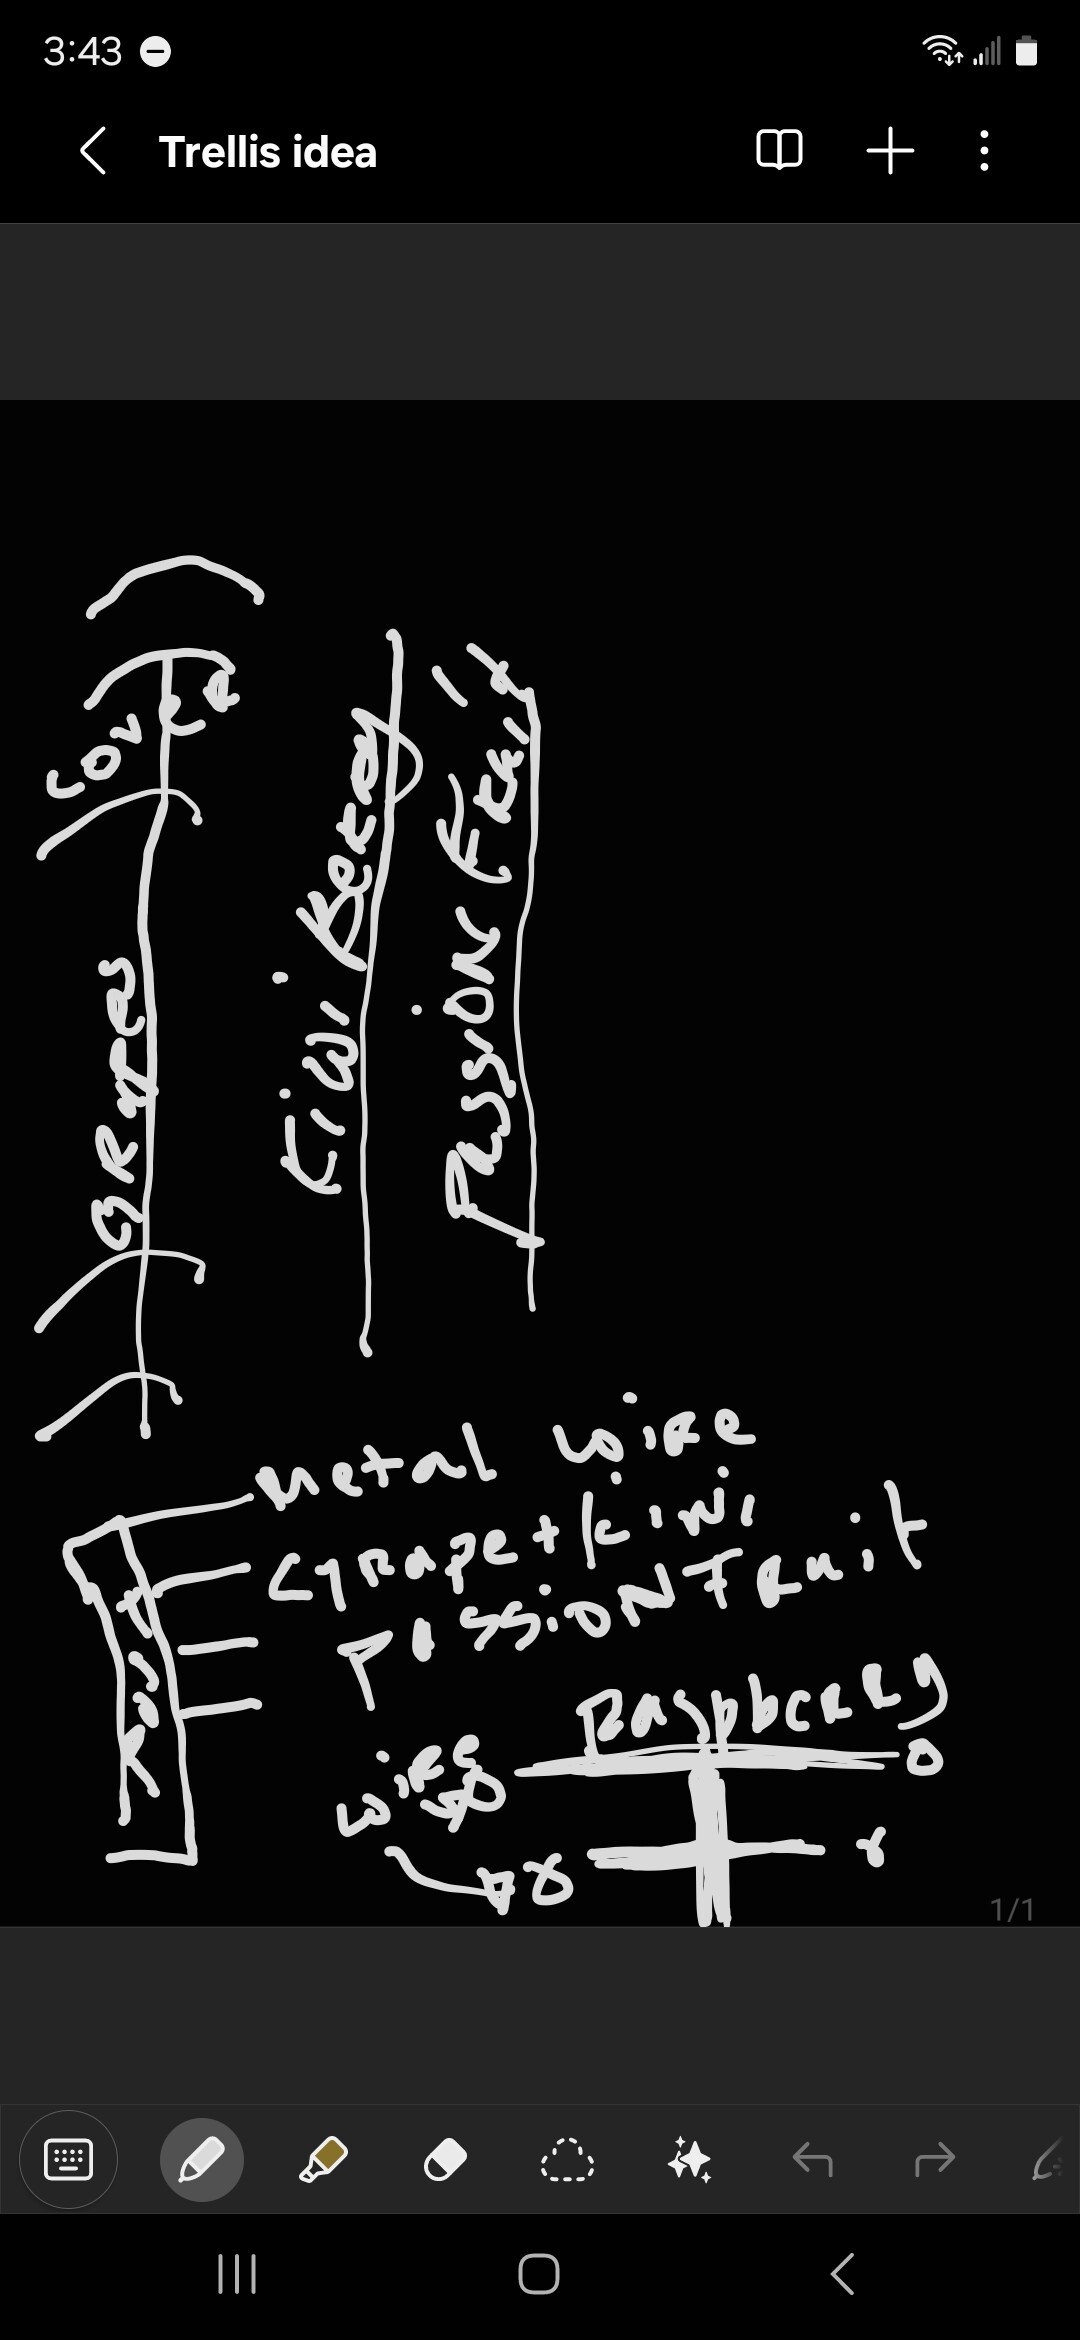 3:43
Trellis idea
Cover
Grapes
Kiwi Berry
Passion Fruit
Metal wire
Grape + kiwi
Passion Fruit
Post
Raspberry
wire
1/1